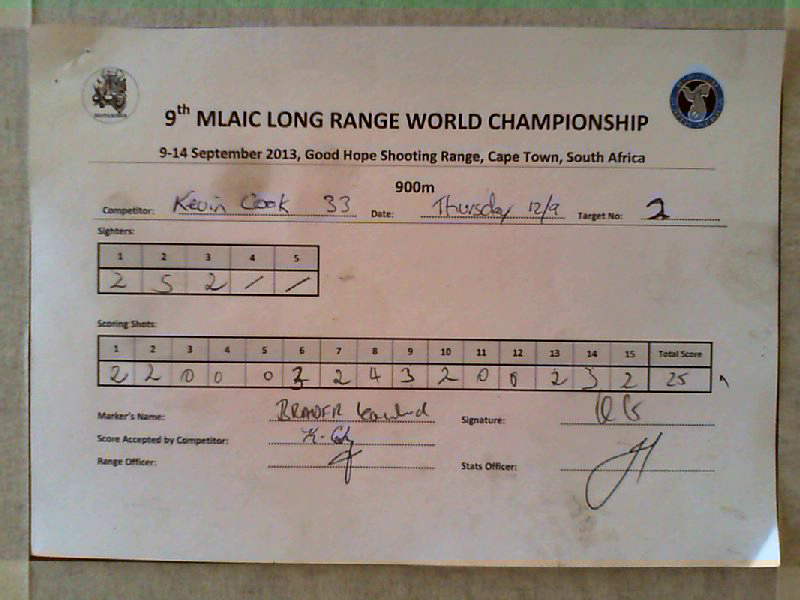 9th MLAIC LONG RANGE WORLD CHAMPIONSHIP
9-14 September 2013, Good Hope Shooting Range, Cape Town, South Africa
900m
Competitor: Kevin Cook 33 Date: Thursday 12/9 Target No: 2
Sighters:
1 2 3 4 5
2 5 2 / /
Scoring Shots:
1 2 3 4 5 6 7 8 9 10 11 12 13 14 15 Total Score
2 2 0 0 0 3 2 4 3 2 0 0 2 3 2 25
Marker's Name: Signature:
Score Accepted by Competitor:
Range Officer: Stats Officer: